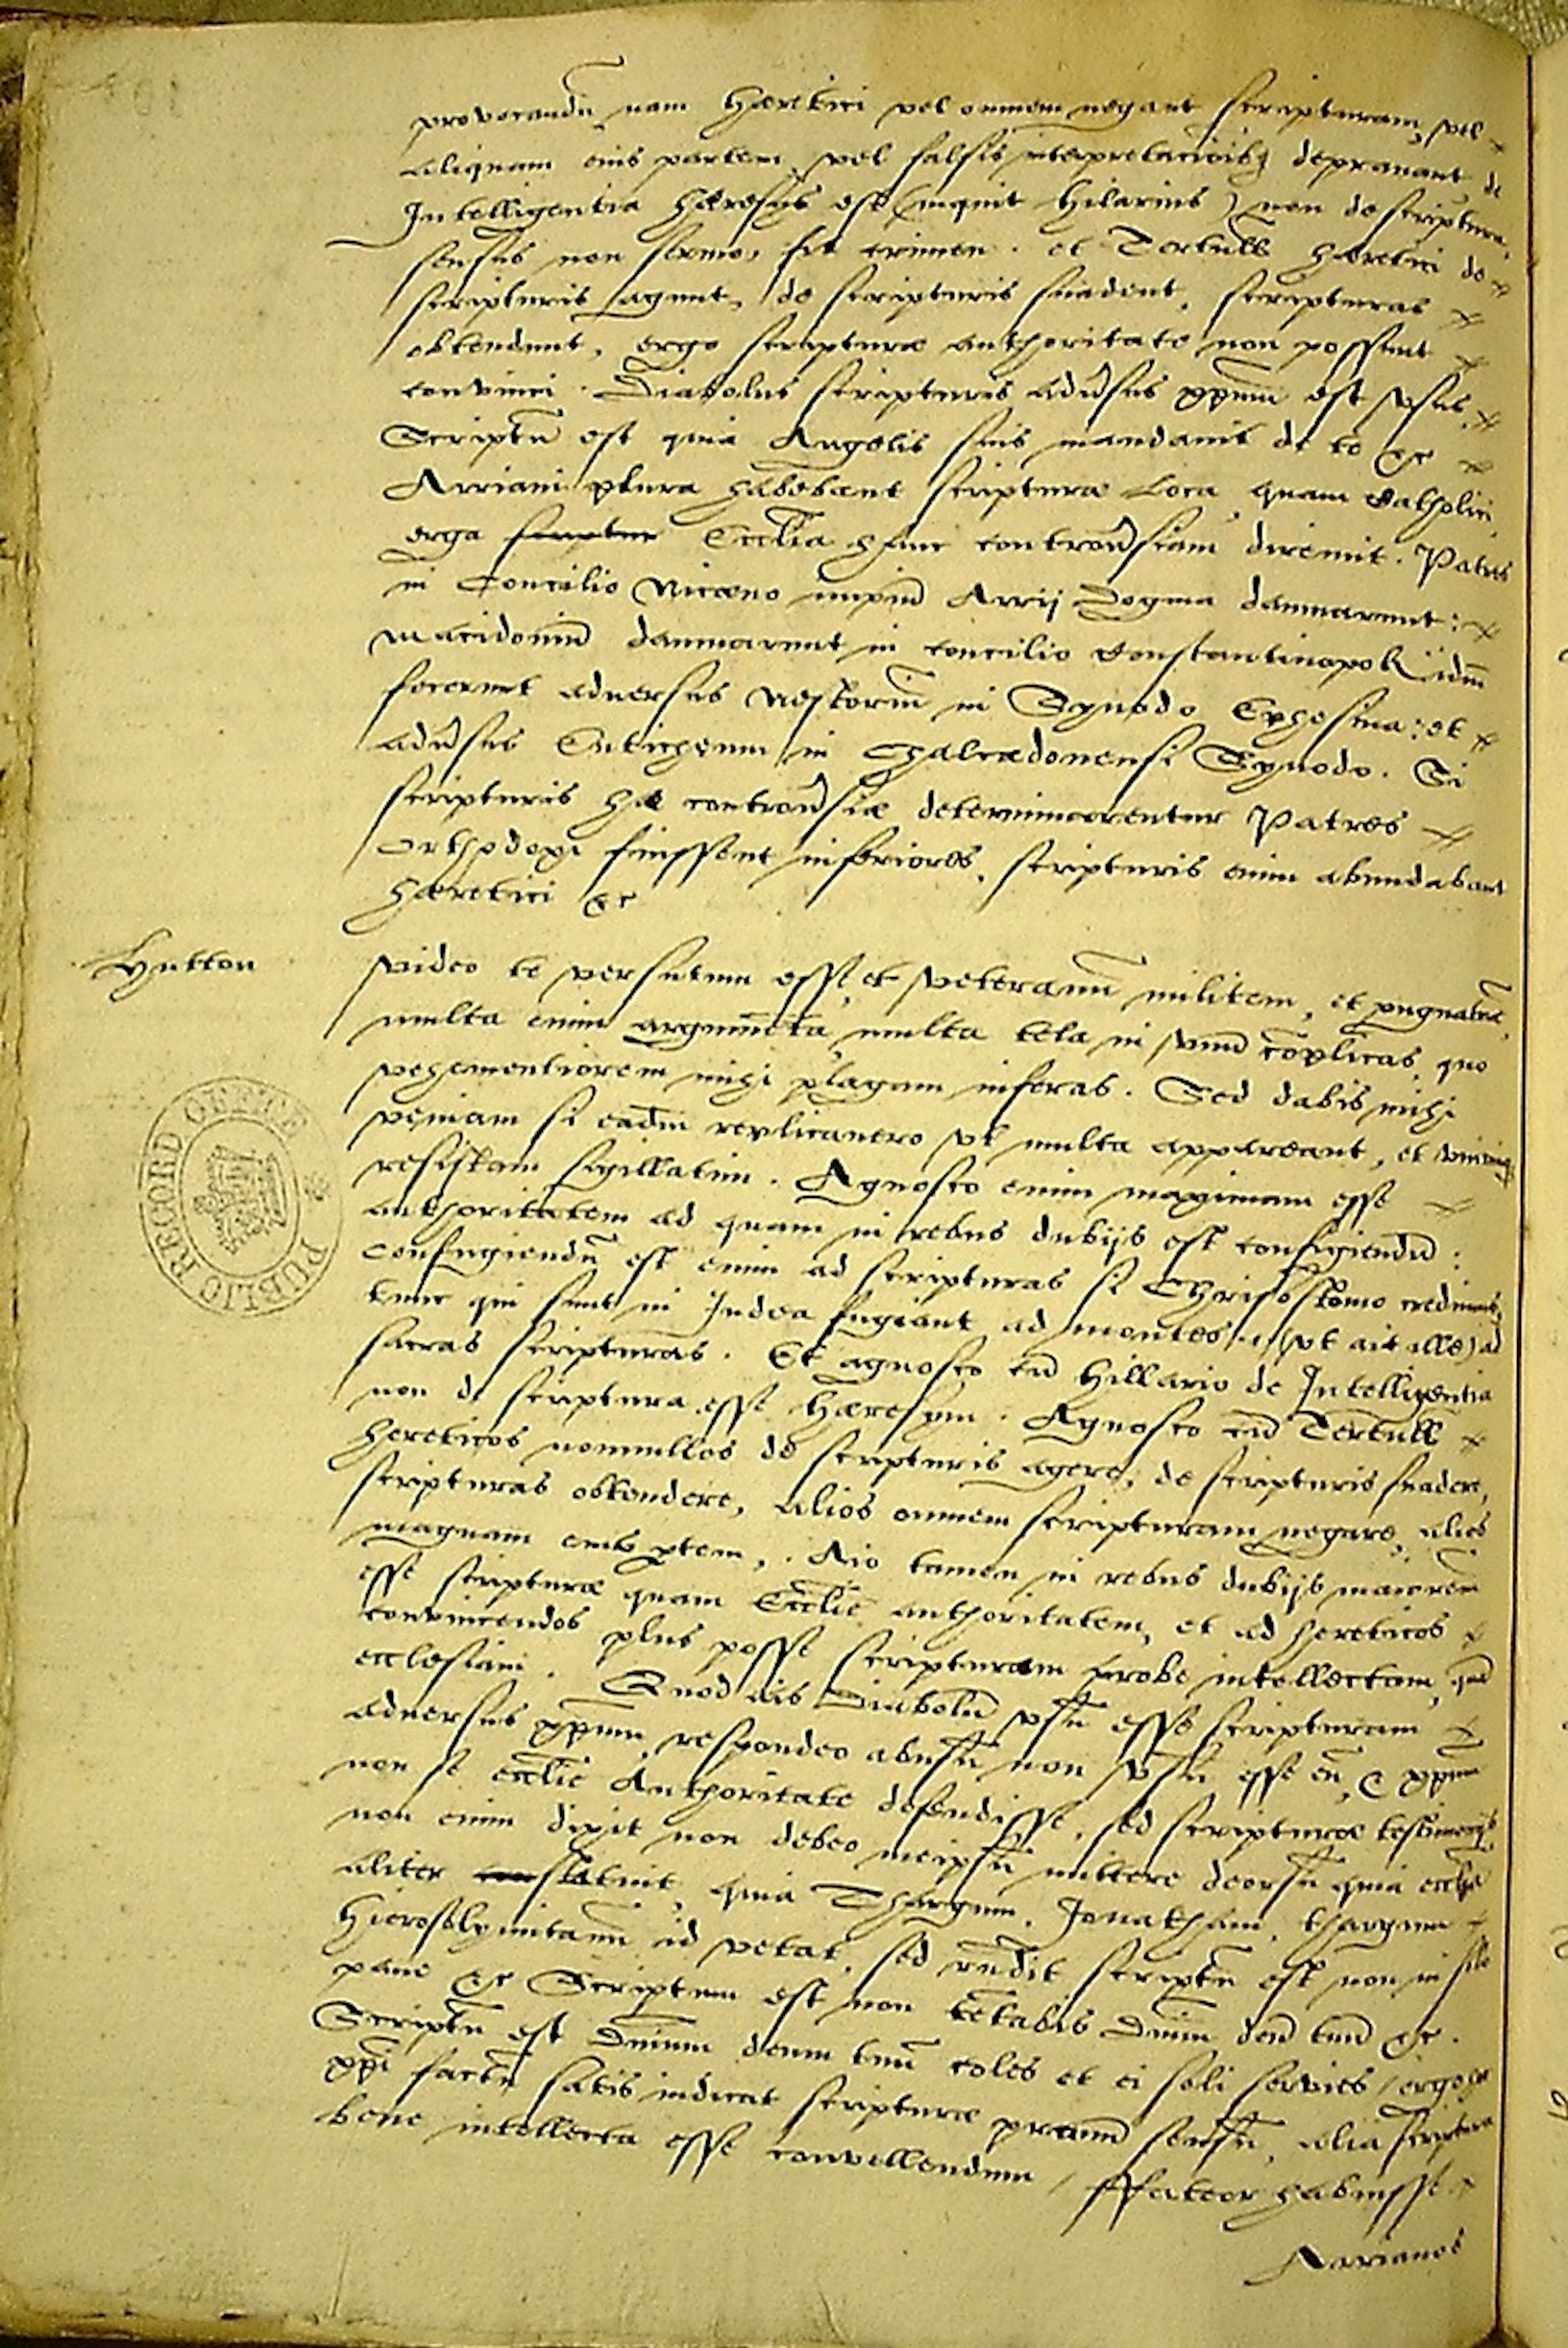 provocandū, nam hæretici vel omnem negant scripturam, vel
aliquam eius partem, vel falsis interpretacioibꝫ depravant de
Intelligentia hæresys est (inquit Hilarius) non de scriptura,
sensus non sermo, fit crimen. et Tertull hæretici de
scripturis agunt, de scripturis suadent, scripturas
obtendunt, ergo scripturæ authoritate non possunt
convinci. Diabolus scripturis adūsus xp̄um est vsus,
Scriptū est quia Angelis suis mandavit de te &c
Arriani plura habebant scripturæ Loca, quam Catholici
ergo scriptur Ecclīa hanc controūsiam diremit. Patres
in Concilio Niceno impiū Arrij Dogma damnarunt:
Macidoniū damnarunt in concilio Constantinopoli idm̄
fecerunt adversus Nestoriū in Synodo Ephesina: et
adūsus Euticheum in Chalcædonensi Synodo. Si
scripturis hæ controūsiæ determinarentur Patres
Orthodoxi fuissent inferiores, scripturis enim abundabant
hæretici &c
Hutton
Video te versutum esse, et veteranū militem, et pugnatorē
multa enim argumēta, multa tela in vnū cōplicas, quo
vehementiorem mihi plagam inferas. Sed dabis mihi
veniam si eadm̄ replicavero vt multa appareant, et
resistam sigillatim. Agnosco enim maximam esse
authoritatem ad quam in rebus dubijs est confugiendū:
confugiendū est enim ad scripturas si Chrisostomo credimus,
tunc qui sunt in Iudea fugiant ad montes .i. (vt ait ille) ad
sacras scripturas. Et agnosco cū Hillario de Intelligentia
non de scriptura esse hæresym. Agnosco cū Tertull
hereticos nonnullos de scripturis agere, de scripturis suadere,
scripturas obtendere, alios omnem scripturam negare, alios
magnam eius ꝑtem, . Aio tamen in rebus dubijs maiorem
esse scripturæ quam Ecclīe authoritatem, et ad hereticos
convincendos plus posse scripturam probe intellectam, quā
ecclesiam. Quod ais Diabolū vsū esse scripturam
adversus xp̄um, respondeo abusū non vsū esse eā, & xp̄um
non se ecclīe Authoritate defendisse, sed scripturæ testimonijs
non enim dixit non debeo meipsū mittere deorsū quia ecclīa
aliter con statuit, quia Thargum, Jonatham, thargum
Hierosolymitanū id vetat, sed rn̄dit scriptū est non in solo
pane &c Scriptum est non tētabis Dn̄m deū tuū &c.
Scriptū est Dn̄m deum tuū coles et ei soli servies, ergo
xp̄i factū satis indicat scripturæ pravū sensū, alia scriptura
bene intellecta esse convellendum / ffateor habuisse
Aarianos